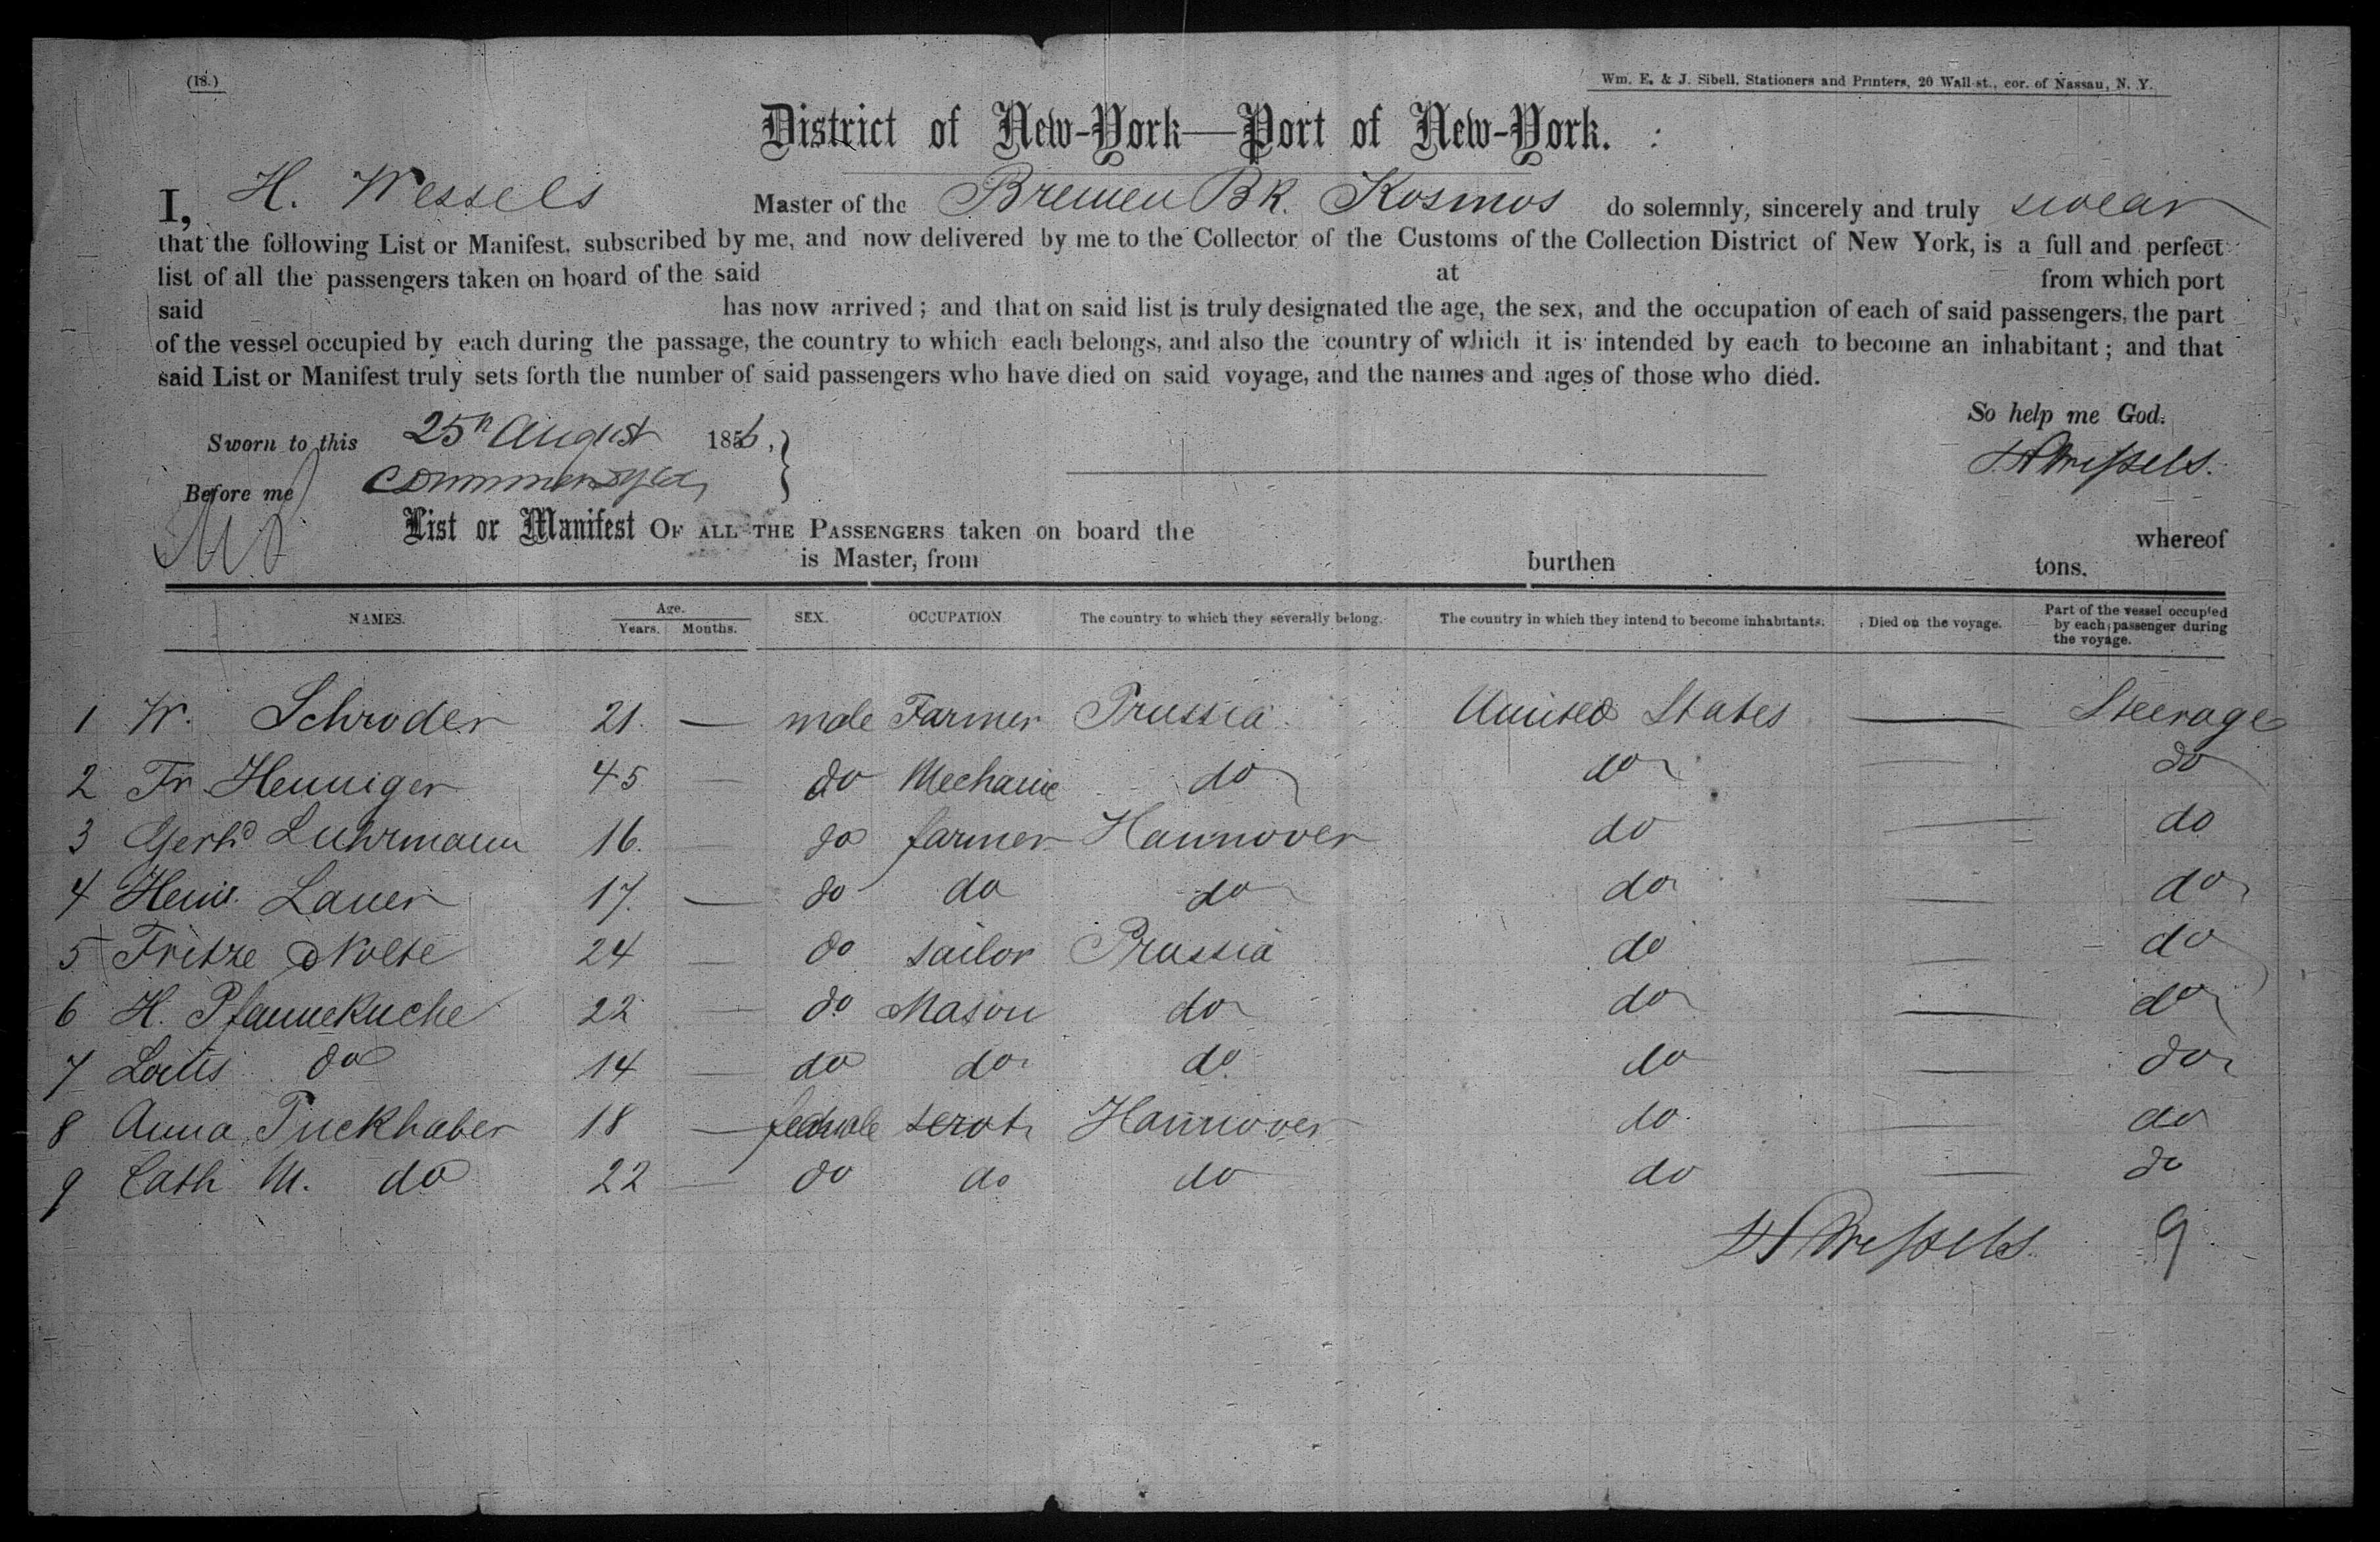 (18.)
Wm. E. & J. Sibell, Stationers and Printers, 20 Wall-st., cor. of Nassau, N. Y.
District of New-York—Port of New-York.
I, H. Wessels Master of the Bremen Bk. Kosmos do solemnly, sincerely and truly swear
that the following List or Manifest, subscribed by me, and now delivered by me to the Collector of the Customs of the Collection District of New York, is a full and perfect
list of all the passengers taken on board of the said at from which port
said has now arrived; and that on said list is truly designated the age, the sex, and the occupation of each of said passengers, the part
of the vessel occupied by each during the passage, the country to which each belongs, and also the country of which it is intended by each to become an inhabitant; and that
said List or Manifest truly sets forth the number of said passengers who have died on said voyage, and the names and ages of those who died.
So help me God.
Sworn to this 25th August 1856,
H Wessels.
Before me
List or Manifest OF ALL THE PASSENGERS taken on board the whereof
is Master, from burthen tons.
NAMES. Age. Years. Months. SEX. OCCUPATION. The country to which they severally belong. The country in which they intend to become inhabitants. Died on the voyage. Part of the vessel occupied by each passenger during the voyage.
1 W. Schroder 21. — male Farmer Prussia United States — Steerage
2 Fr. Henniger 45 — do Mechanic do do — do
3 Gerhd Luhrmann 16. — do farmer Hannover do — do
4 Heinr. Lauer 17. — do do do do — do
5 Fritze Nolte 24 — do sailor Prussia do — do
6 H. Pfannekuche 22 — do Mason do do — do
7 Louis do 14 — do do do do — do
8 Anna Puckhaber 18 — female servt Hannover do — do
9 Cath M. do 22 — do do do do — do
H Wessels. 9